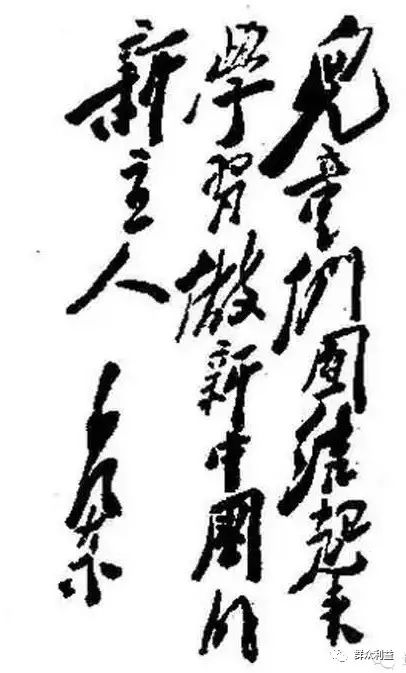 兒童們團結起來
學習做新中國的
新主人
毛澤東
群众利益